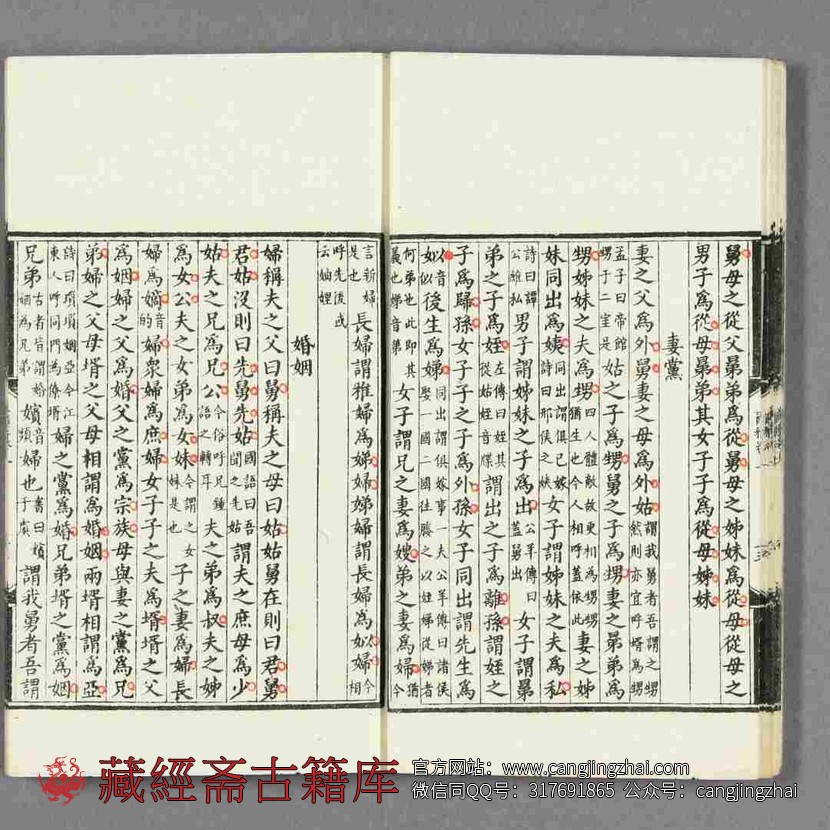 舅母之從父晜弟爲從舅母之姊妹爲從母從母之
男子爲從母晜弟其女子子爲從母姊妹
妻黨
妻之父爲外舅妻之母爲外姑謂我舅者吾謂之甥然則亦宜呼壻爲甥
孟子曰帝館甥于二室是姑之子爲甥舅之子爲甥妻之晜弟爲
甥姊妹之夫爲甥四人體敵故更相爲甥甥猶生也今人相呼蓋依此妻之姊
妹同出爲姨同出謂俱已嫁詩曰邢侯之姨女子謂姊妹之夫爲私
詩曰譚公維私男子謂姊妹之子爲出公羊傳曰蓋舅出女子謂晜
弟之子爲姪左傳曰姪其從姑謂出之子爲離孫謂姪之
子爲歸孫女子子之子爲外孫女子同出謂先生爲
姒後生爲娣同出謂俱嫁事一夫公羊傳曰諸侯娶一國二國往媵之以姪娣從娣者
何弟也此即其義也女子謂兄之妻爲嫂弟之妻爲婦猶今
言新婦是也長婦謂稚婦爲娣婦娣婦謂長婦爲姒婦今相
呼先後或云妯娌
婚姻
婦稱夫之父曰舅稱夫之母曰姑姑舅在則曰君舅
君姑沒則曰先舅先姑國語曰吾聞之先姑謂夫之庶母爲少
姑夫之兄爲兄公今俗呼兄鍾語之轉耳夫之弟爲叔夫之姊
爲女公夫之女弟爲女妹今謂之女妹是也子之妻爲婦長
婦爲嫡婦衆婦爲庶婦女子子之夫爲壻壻之父
爲姻婦之父爲婚父之黨爲宗族母與妻之黨爲兄
弟婦之父母壻之父母相謂爲婚姻兩壻相謂爲亞
詩曰瑣瑣姻亞今江東人呼同門爲僚壻婦之黨爲婚兄弟壻之黨爲姻
兄弟古者皆謂婚姻爲兄弟嬪婦也書曰嬪于虞謂我舅者吾謂
藏經斋古籍库
官方网站：www.cangjingzhai.com
微信同QQ号：317691865 公众号：cangjingzhai